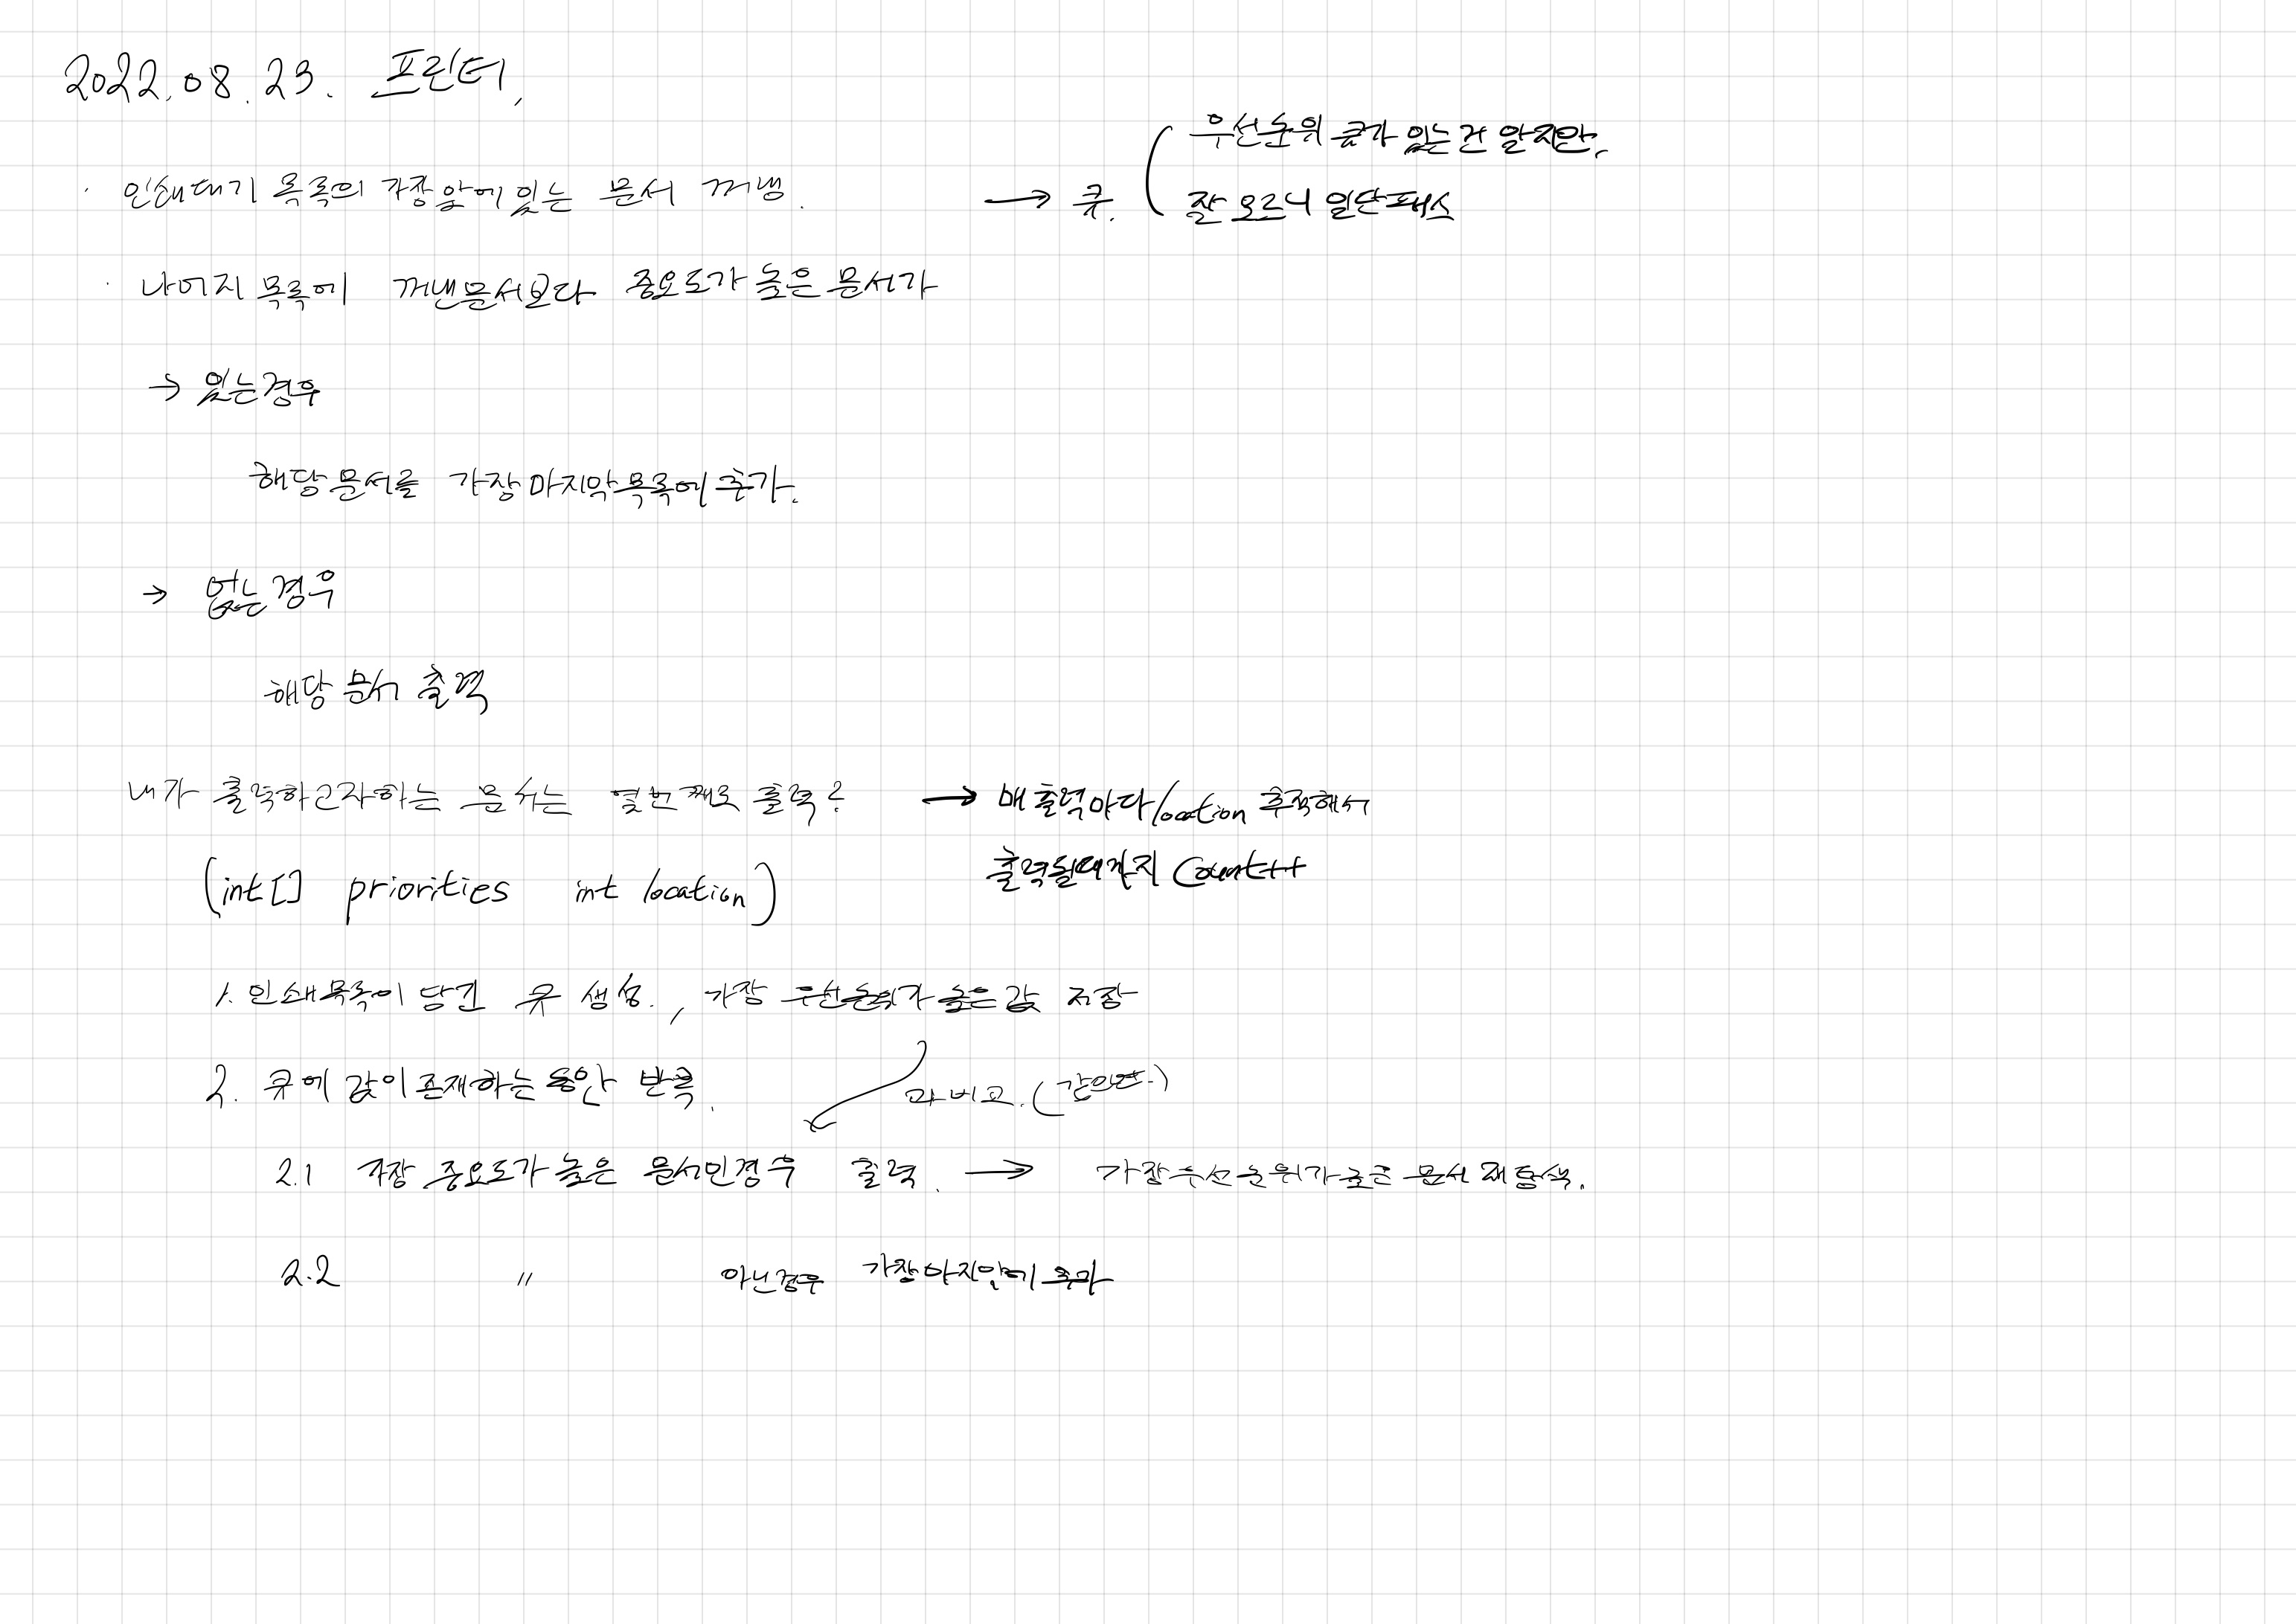 2022.08.23. 프린터,
우선순위 큐가 있는건 알지만,
· 인쇄대기 목록의 가장앞에있는 문서 꺼냄. → 큐.
잘 모르니 일단패스
· 나머지 목록에 꺼낸문서보다 중요도가 높은 문서가
→ 있는경우
해당문서를 가장마지막목록에 추가.
→ 없는경우
해당 문서 출력
내가 출력하고자하는 문서는 몇번째로 출력? → 매출력마다 location 추적해서
출력될때까지 Count++
(int[] priorities int location)
1. 인쇄목록이 담긴 큐 생성., 가장 우선순위가 높은값 저장
2. 큐에 값이 존재하는동안 반복.
과 비교. (같으면)
2.1 가장 중요도가 높은 문서인경우 출력. → 가장우선순위가높은 문서 재탐색.
2.2 〃 아닌경우 가장마지막에 추가